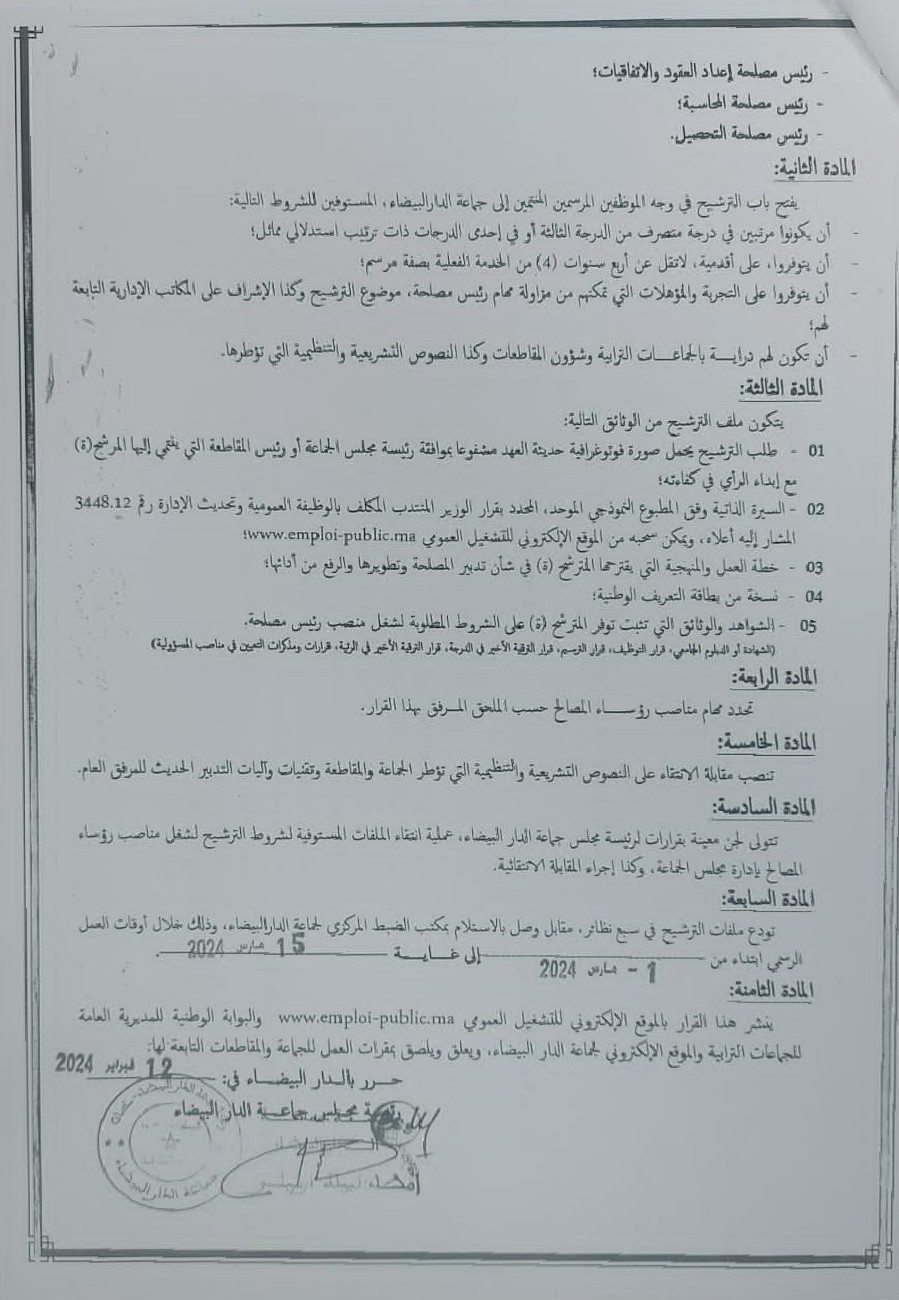 - رئيس مصلحة إعداد العقود والاتفاقيات؛
- رئيس مصلحة المحاسبة؛
- رئيس مصلحة التحصيل.
المادة الثانية:
يفتح باب الترشيح في وجه الموظفين المرسمين المنتمين إلى جماعة الدارالبيضاء، المستوفين للشروط التالية:
- أن يكونوا مرتبين في درجة متصرف من الدرجة الثالثة أو في إحدى الدرجات ذات ترتيب استدلالي مماثل؛
- أن يتوفروا، على أقدمية، لاتقل عن أربع سنوات (4) من الخدمة الفعلية بصفة مرسم؛
- أن يتوفروا على التجربة والمؤهلات التي تمكنهم من مزاولة مهام رئيس مصلحة، موضوع الترشيح وكذا الإشراف على المكاتب الإدارية التابعة
لهم؛
- أن تكون لهم دراية بالجماعات الترابية وشؤون المقاطعات وكذا النصوص التشريعية والتنظيمية التي تؤطرها.
المادة الثالثة:
يتكون ملف الترشيح من الوثائق التالية:
01 - طلب الترشيح يحمل صورة فوتوغرافية حديثة العهد مشفوعا بموافقة رئيسة مجلس الجماعة أو رئيس المقاطعة التي ينتمي إليها المرشح(ة)
مع إبداء الرأي في كفاءته؛
02 - السيرة الذاتية وفق المطبوع النموذجي الموحد، المحدد بقرار الوزير المنتدب المكلف بالوظيفة العمومية وتحديث الإدارة رقم 3448.12
المشار إليه أعلاه، ويمكن سحبه من الموقع الإلكتروني للتشغيل العمومي www.emploi-public.ma؛
03 - خطة العمل والمنهجية التي يقترحها المترشح (ة) في شأن تدبير المصلحة وتطويرها والرفع من أدائها؛
04 - نسخة من بطاقة التعريف الوطنية؛
05 - الشواهد والوثائق التي تثبت توفر المترشح (ة) على الشروط المطلوبة لشغل منصب رئيس مصلحة.
(الشهادة أو الدبلوم الجامعي، قرار التوظيف، قرار الترسيم، قرار الترقية الأخير في الدرجة، قرار الترقية الأخير في الرتبة، قرارات ومذكرات التعيين في مناصب المسؤولية)
المادة الرابعة:
تحدد مهام مناصب رؤساء المصالح حسب الملحق المرفق بهذا القرار.
المادة الخامسة:
تنصب مقابلة الانتقاء على النصوص التشريعية والتنظيمية التي تؤطر الجماعة والمقاطعة وتقنيات وآليات التدبير الحديث للمرفق العام.
المادة السادسة:
تتولى لجن معينة بقرارات لرئيسة مجلس جماعة الدار البيضاء، عملية انتقاء الملفات المستوفية لشروط الترشيح لشغل مناصب رؤساء
المصالح بإدارة مجلس الجماعة، وكذا إجراء المقابلة الانتقائية.
المادة السابعة:
تودع ملفات الترشيح في سبع نظائر، مقابل وصل بالاستلام بمكتب الضبط المركزي لجماعة الدارالبيضاء، وذلك خلال أوقات العمل
الرسمي ابتداء من 1 - مارس 2024 إلى غاية 15 مارس 2024.
المادة الثامنة:
ينشر هذا القرار بالموقع الإلكتروني للتشغيل العمومي www.emploi-public.ma والبوابة الوطنية للمديرية العامة
للجماعات الترابية والموقع الإلكتروني لجماعة الدار البيضاء، ويعلق ويلصق بمقرات العمل للجماعة والمقاطعات التابعة لها.
حرر بالدار البيضاء في: 12 فبراير 2024
رئيسة مجلس جماعة الدار البيضاء
جماعة الدار البيضاء